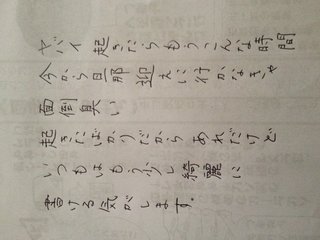 ヤバイ 起きたらもうこんな時間
今から旦那 迎えに行かなきゃ
面倒臭い
起きたばかりだから あれだけど
いつもはもう少し綺麗に
書ける気がします.